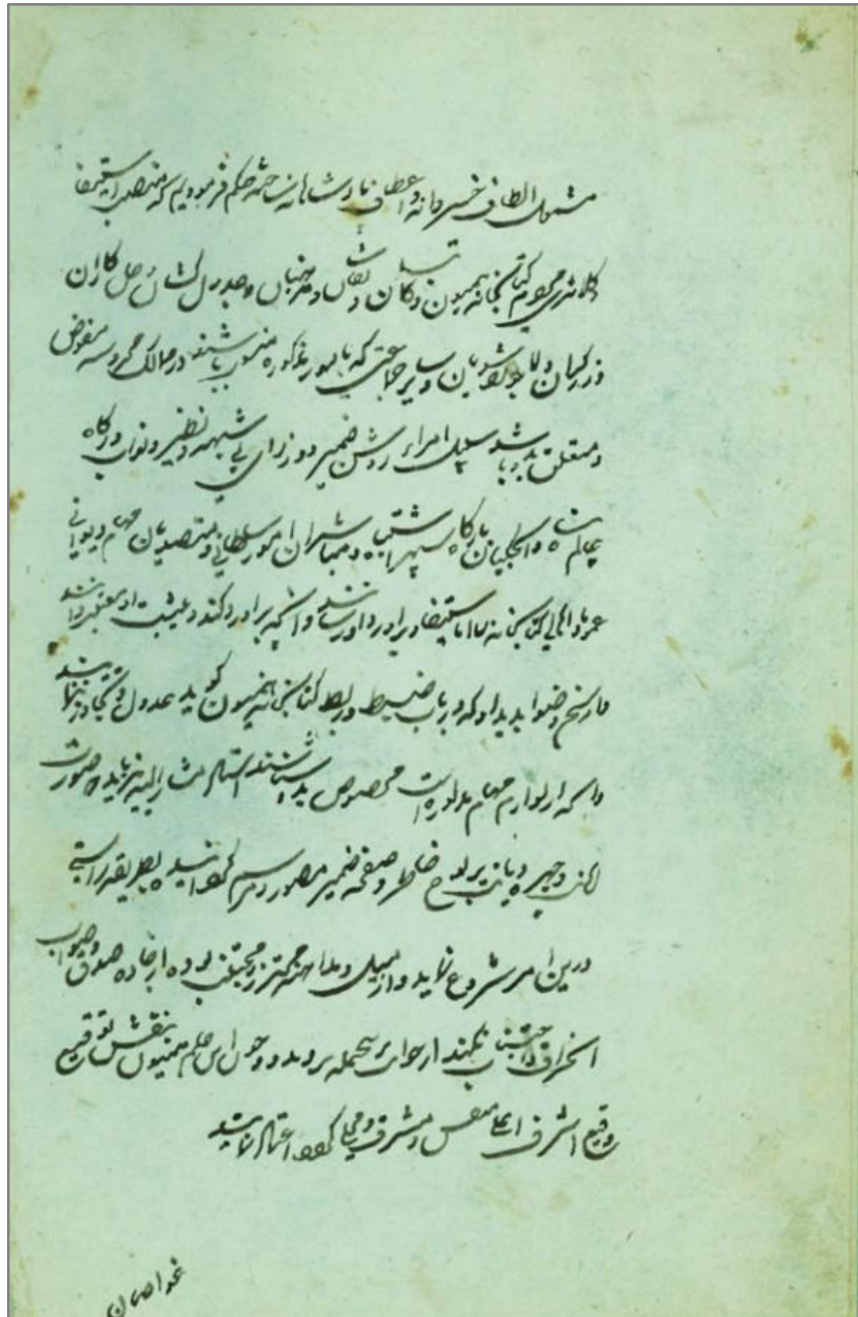 مشمول الطاف خسروانه و اعطاف پادشاهانه ساخته حکم فرمودیم که منصب استیفا
و کلانتری مردم کتابخانه همیون و کاتبان و نقاشان و مذهبان و جدول کشان و حل کاران
و زرکوبان و لاجوردشویان و سایر جماعتی که بامور مذکوره منسوب باشند در ممالک محروسه مفوض
و متعلق بدو باشد سبیل امراء روشن ضمیر و وزرای بی شبهه و نظیر و نواب درکاه
عالم پناه و ایجکیان بارکاه سپهر اشتباه و مباشران امور سلطانی و متصدیان مهام دیوانی
عموما و اهالی کتابخانه استیفا و را
و از سخن و صوابدید او که در باب ضبط و ربط کتابخانه همیون کوید عدول و تجاوز ننمایند
و آنچه از لوازم مهام مذکوره است مخصوص بدو شناسند مشار الیه نیز باید که صورت
امانت و چهره دیانت بر لوح خاطر و صفحه ضمیر مصور و مرسم کردانیده بطریقه راستی
درین امر شروع نماید و از میل و مداهنه محترز و مجتنب بوده از جاده صدق و صواب
انحراف و اجتناب نکند از جوانب برینجمله بروند و چون این حکم همیون بنقش توقیع
وقیع اشرف اعلی منقش و مشرف و محلی کردد اعتماد نمایند